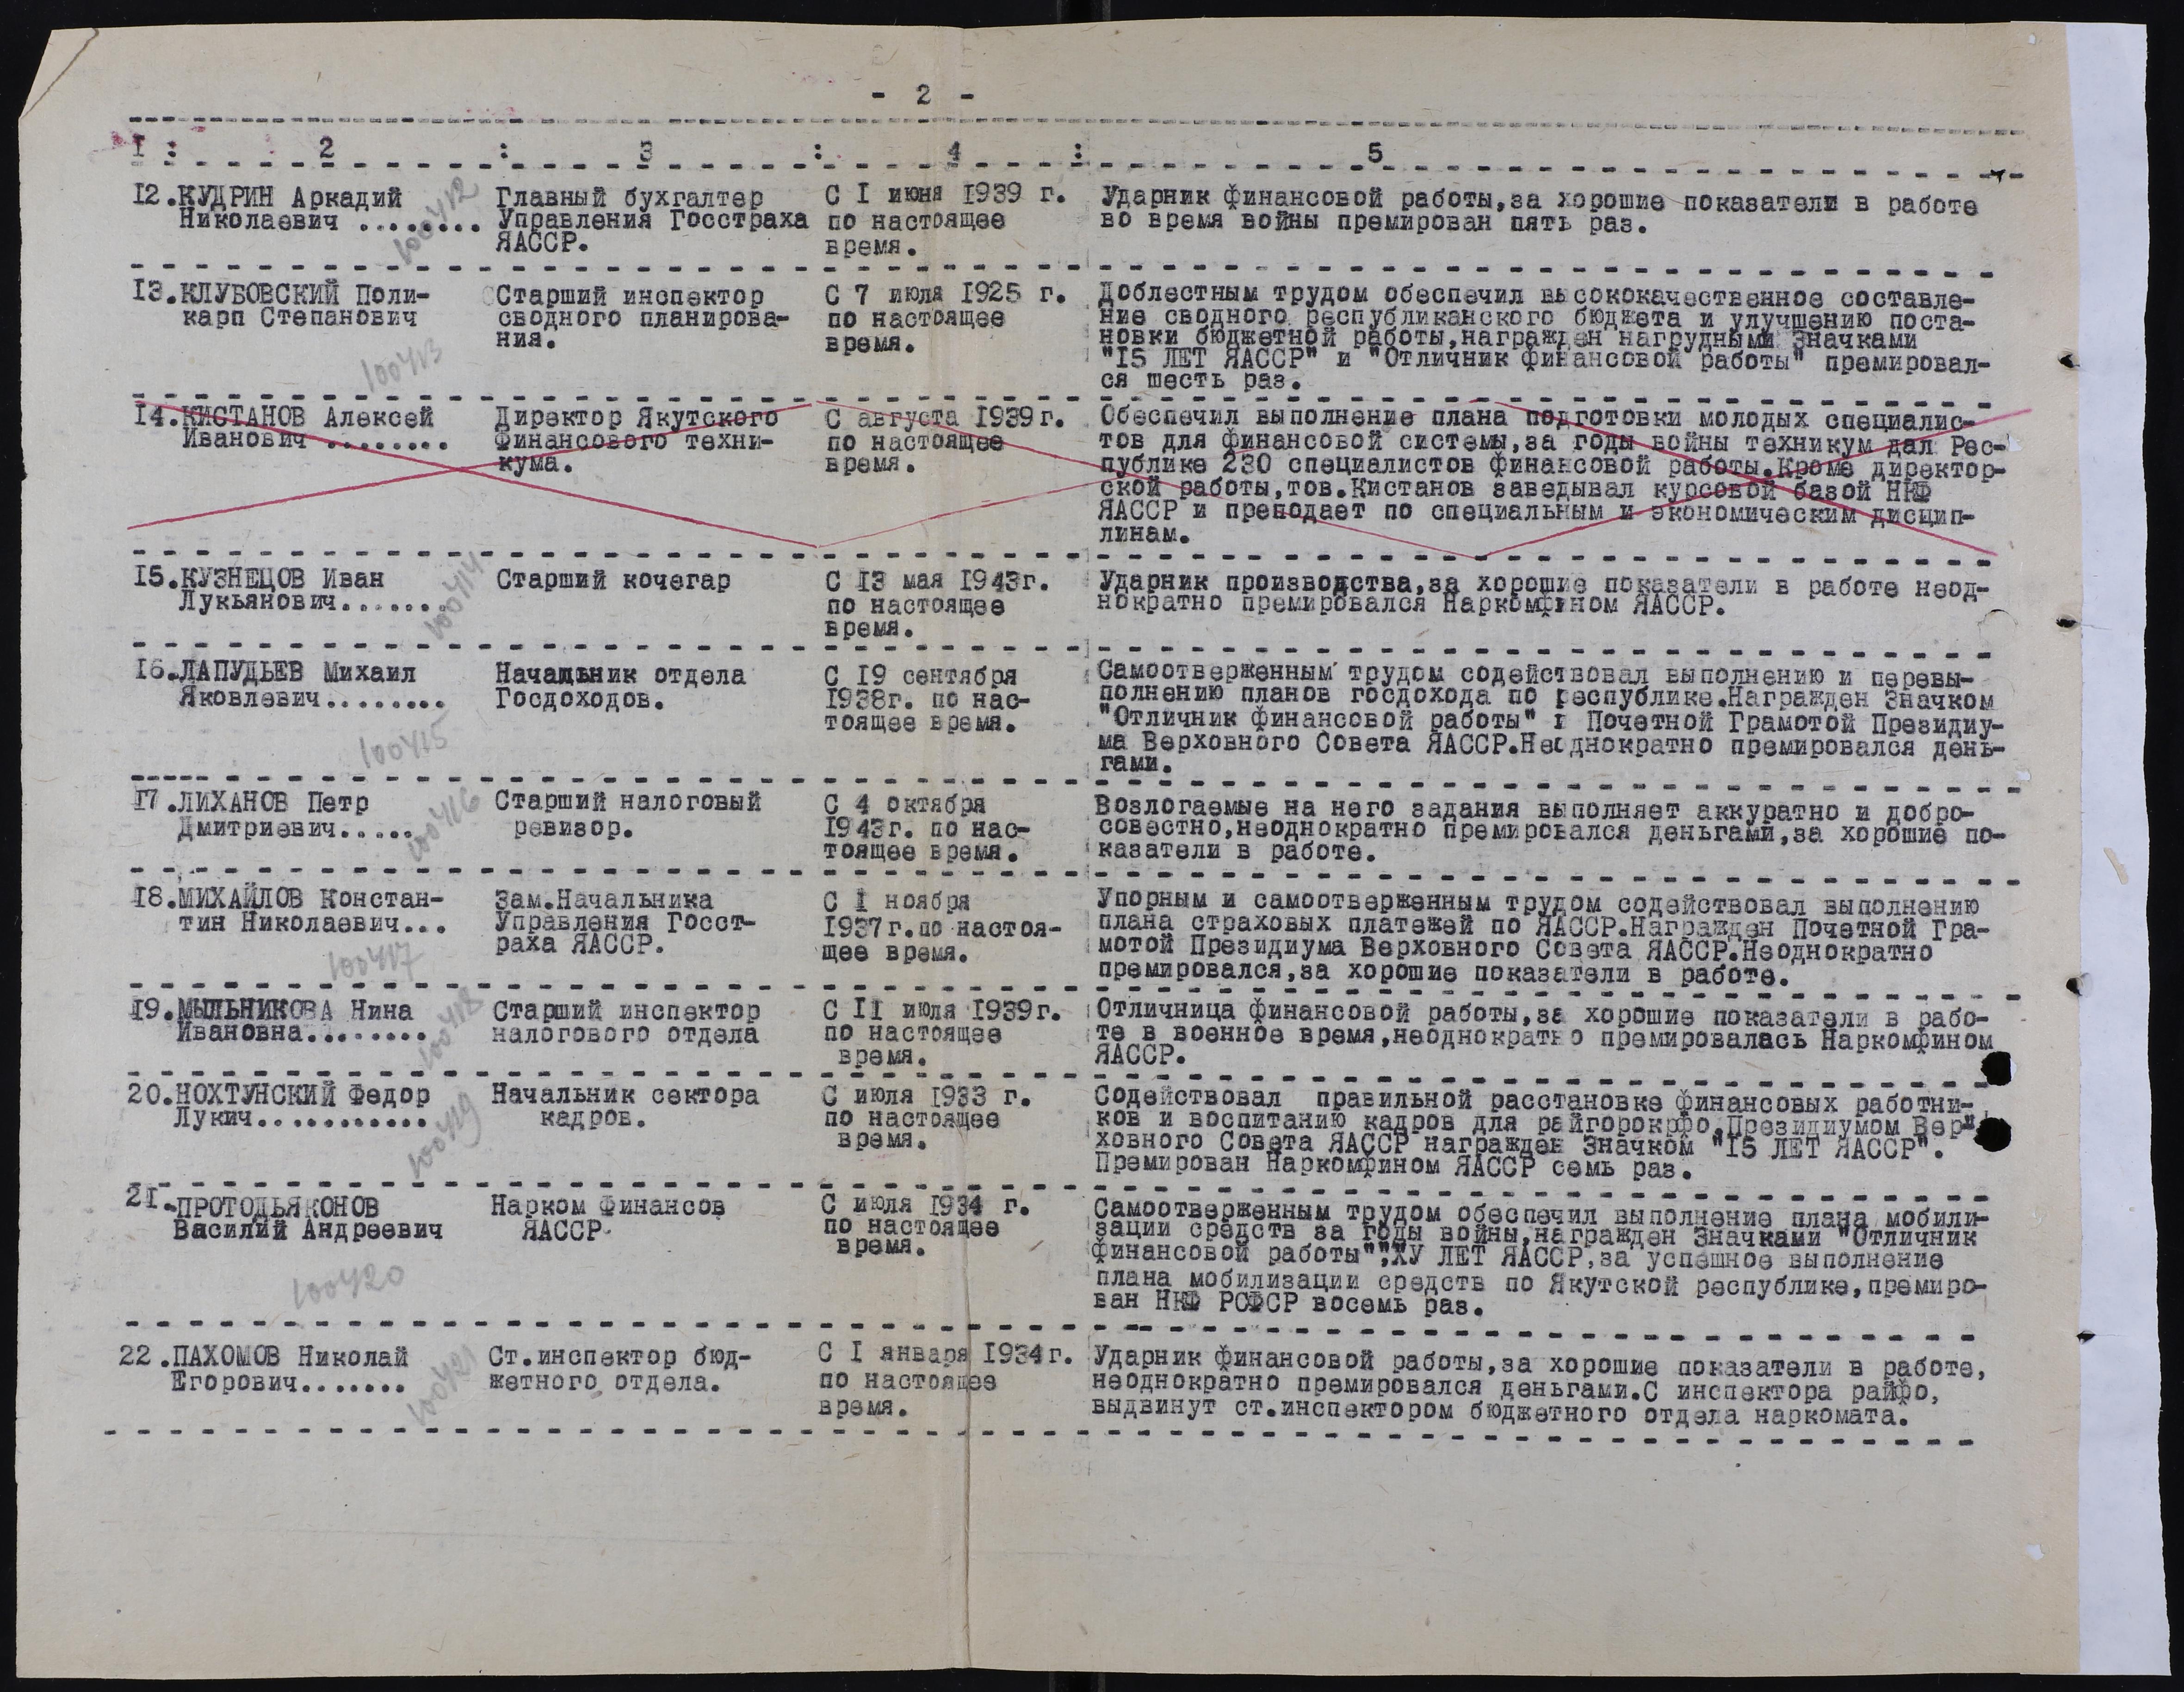 - 2 -
I : 2 : 3 : 4 : 5
12.КУДРИН Аркадий
Николаевич ........
100412
Главный бухгалтер
Управления Госстраха
ЯАССР.
С I июня 1939 г.
по настоящее
время.
Ударник финансовой работы,за хорошие показатели в работе
во время войны премирован пять раз.
13.КЛУБОВСКИЙ Поли-
карп Степанович
100413
Старший инспектор
сводного планирова-
ния.
С 7 июля 1925 г.
по настоящее
время.
Доблестным трудом обеспечил высококачественное составле-
ние сводного республиканского бюджета и улучшению поста-
новки бюджетной работы,награжден нагрудными Значками
"15 ЛЕТ ЯАССР" и "Отличник финансовой работы" премировал-
ся шесть раз.
14.КИСТАНОВ Алексей
Иванович ........
Директор Якутского
Финансового техни-
кума.
С августа 1939г.
по настоящее
время.
Обеспечил выполнение плана подготовки молодых специалис-
тов для финансовой системы,за годы войны техникум дал Рес-
публике 230 специалистов финансовой работы.Кроме директор-
ской работы,тов.Кистанов заведывал курсовой базой НКФ
ЯАССР и преподает по специальным и экономическим дисцип-
линам.
15.КУЗНЕЦОВ Иван
Лукьянович.......
100414
Старший кочегар
С 13 мая 1943г.
по настоящее
время.
Ударник производства,за хорошие показатели в работе неод-
нократно премировался Наркомфином ЯАССР.
16.ЛАПУДЬЕВ Михаил
Яковлевич........
100415
Начальник отдела
Госдоходов.
С 19 сентября
1938г. по нас-
тоящее время.
Самоотверженным трудом содействовал выполнению и перевы-
полнению планов госдохода по республике.Награжден Значком
"Отличник финансовой работы" и Почетной Грамотой Президиу-
ма Верховного Совета ЯАССР.Неоднократно премировался день-
гами.
17.ЛИХАНОВ Петр
Дмитриевич.....
100416
Старший налоговый
ревизор.
С 4 октября
1943г. по нас-
тоящее время.
Возлогаемые на него задания выполняет аккуратно и добро-
совестно,неоднократно премировался деньгами,за хорошие по-
казатели в работе.
18.МИХАЙЛОВ Констан-
тин Николаевич...
100417
Зам.Начальника
Управления Госст-
раха ЯАССР.
С I ноября
1937г.по настоя-
щее время.
Упорным и самоотверженным трудом содействовал выполнению
плана страховых платежей по ЯАССР.Награжден Почетной Гра-
мотой Президиума Верховного Совета ЯАССР.Неоднократно
премировался,за хорошие показатели в работе.
19.МЫЛЬНИКОВА Нина
Ивановна........
100418
Старший инспектор
налогового отдела
С II июля 1939г.
по настоящее
время.
Отличница финансовой работы,за хорошие показатели в рабо-
те в военное время,неоднократно премировалась Наркомфином
ЯАССР.
20.НОХТУНСКИЙ Федор
Лукич...........
100419
Начальник сектора
кадров.
С июля 1933 г.
по настоящее
время.
Содействовал правильной расстановке финансовых работни-
ков и воспитанию кадров для райгорокрфо.Президиумом Вер-
ховного Совета ЯАССР награжден Значком "15 ЛЕТ ЯАССР".
Премирован Наркомфином ЯАССР семь раз.
21.ПРОТОДЬЯКОНОВ
Василий Андреевич
100420
Нарком Финансов
ЯАССР.
С июля 1934 г.
по настоящее
время.
Самоотверженным трудом обеспечил выполнение плана мобили-
зации средств за годы войны,награжден Значками "Отличник
финансовой работы","ХУ ЛЕТ ЯАССР,за успешное выполнение
плана мобилизации средств по Якутской республике,премиро-
ван НКФ РСФСР восемь раз.
22.ПАХОМОВ Николай
Егорович.......
100421
Ст.инспектор бюд-
жетного отдела.
С I января 1934г.
по настоящее
время.
Ударник финансовой работы,за хорошие показатели в работе,
неоднократно премировался деньгами.С инспектора райфо,
выдвинут ст.инспектором бюджетного отдела наркомата.